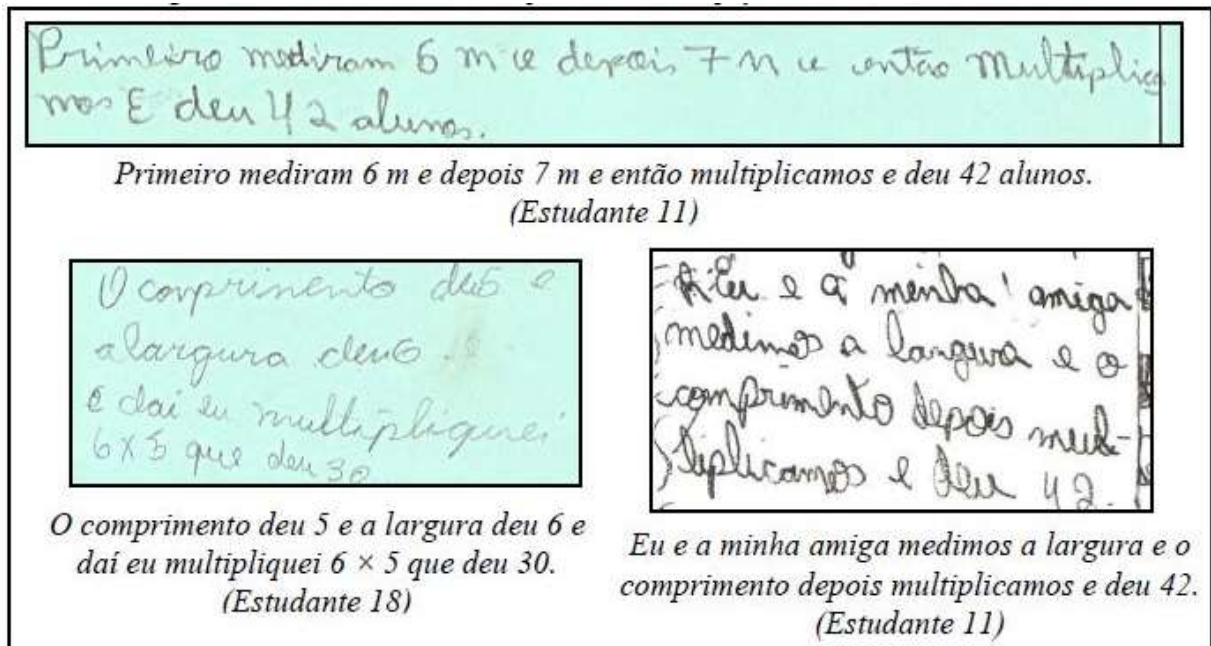 Primeiro mediram 6 m e depois 7 m e então multiplica
mos E deu 42 alunos.
Primeiro mediram 6 m e depois 7 m e então multiplicamos e deu 42 alunos.
(Estudante 11)
O comprimento deu 5 e
a largura deu 6
e daí eu multipliquei
6 X 5 que deu 30
O comprimento deu 5 e a largura deu 6 e
daí eu multipliquei 6 × 5 que deu 30.
(Estudante 18)
Eu e a minha amiga
medimos a largura e o
comprimento depois mul-
tiplicamos e deu 42.
Eu e a minha amiga medimos a largura e o
comprimento depois multiplicamos e deu 42.
(Estudante 11)